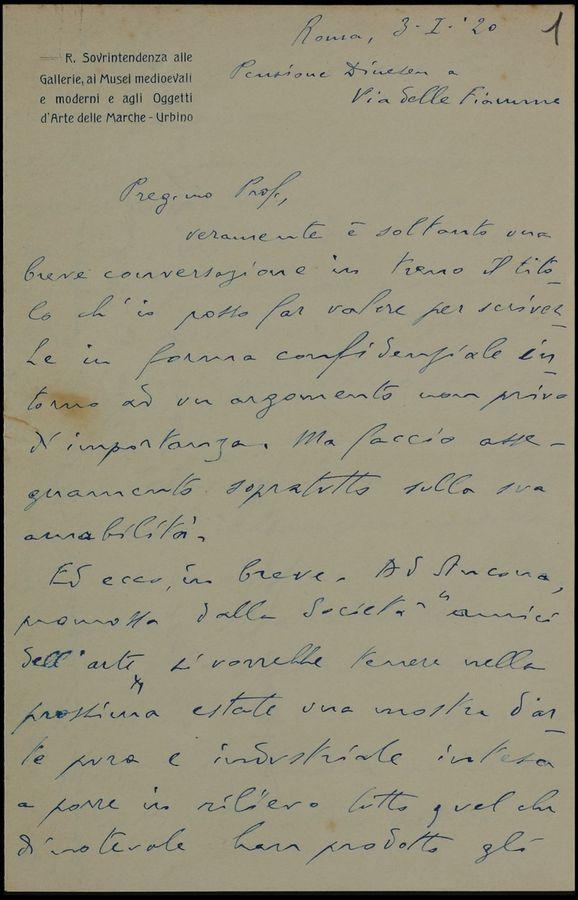 Roma, 3-I-'20
1
R. Sovrintendenza alle
Gallerie, ai Musei medioevali
e moderni e agli Oggetti
d'Arte delle Marche - Urbino
Pensione Dinesen a
Via delle Fiamme
Preg.mo Prof.,
veramente è soltanto una
breve conversazione in treno il tito-
lo ch'io posso far valere per scriver-
Le in forma confidenziale in-
torno ad un argomento non privo
d'importanza. Ma faccio asse-
gnamento sopratutto sulla sua
amabilità.
Ed ecco, in breve. Ad Ancona,
promossa dalla Società "amici
dell'arte" si vorrebbe tenere nella
prossima estate una mostra d'ar-
te pura e industriale intesa
a porre in rilievo tutto quel che
di notevole han prodotto gli